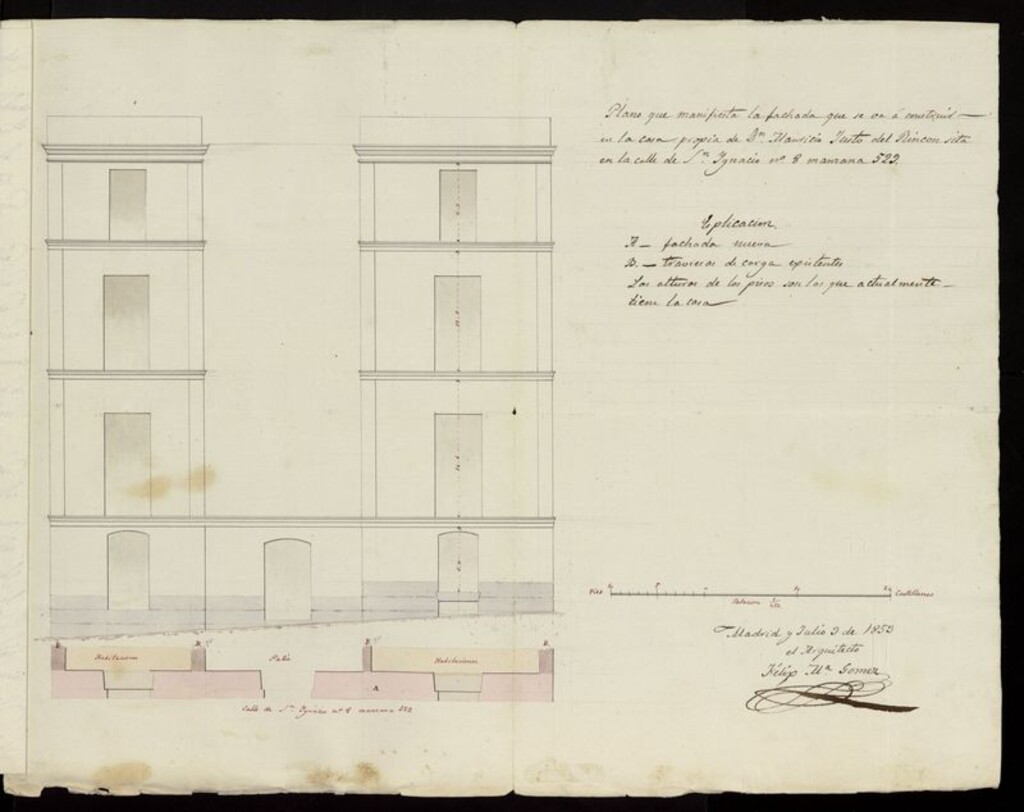 Plano que manifiesta la fachada que se va á construir
en la casa propia de Dn. Mauricio Justo del Rincon sita
en la calle de Sn. Ygnacio nº 8 manzana 522.
Esplicacion.
A — fachada nueva
B. — traviesas de carga existentes
Las alturas de los pisos son las que actualmente
tiene la casa
Pies
Castellanos
Madrid y Julio 9 de 1853
el Arquitecto
Felipe Mª Gomez
B
B
B
B
Habitacion
Patio
Habitaciones
A
Calle de Sn. Ygnacio nº 8 manzana 522